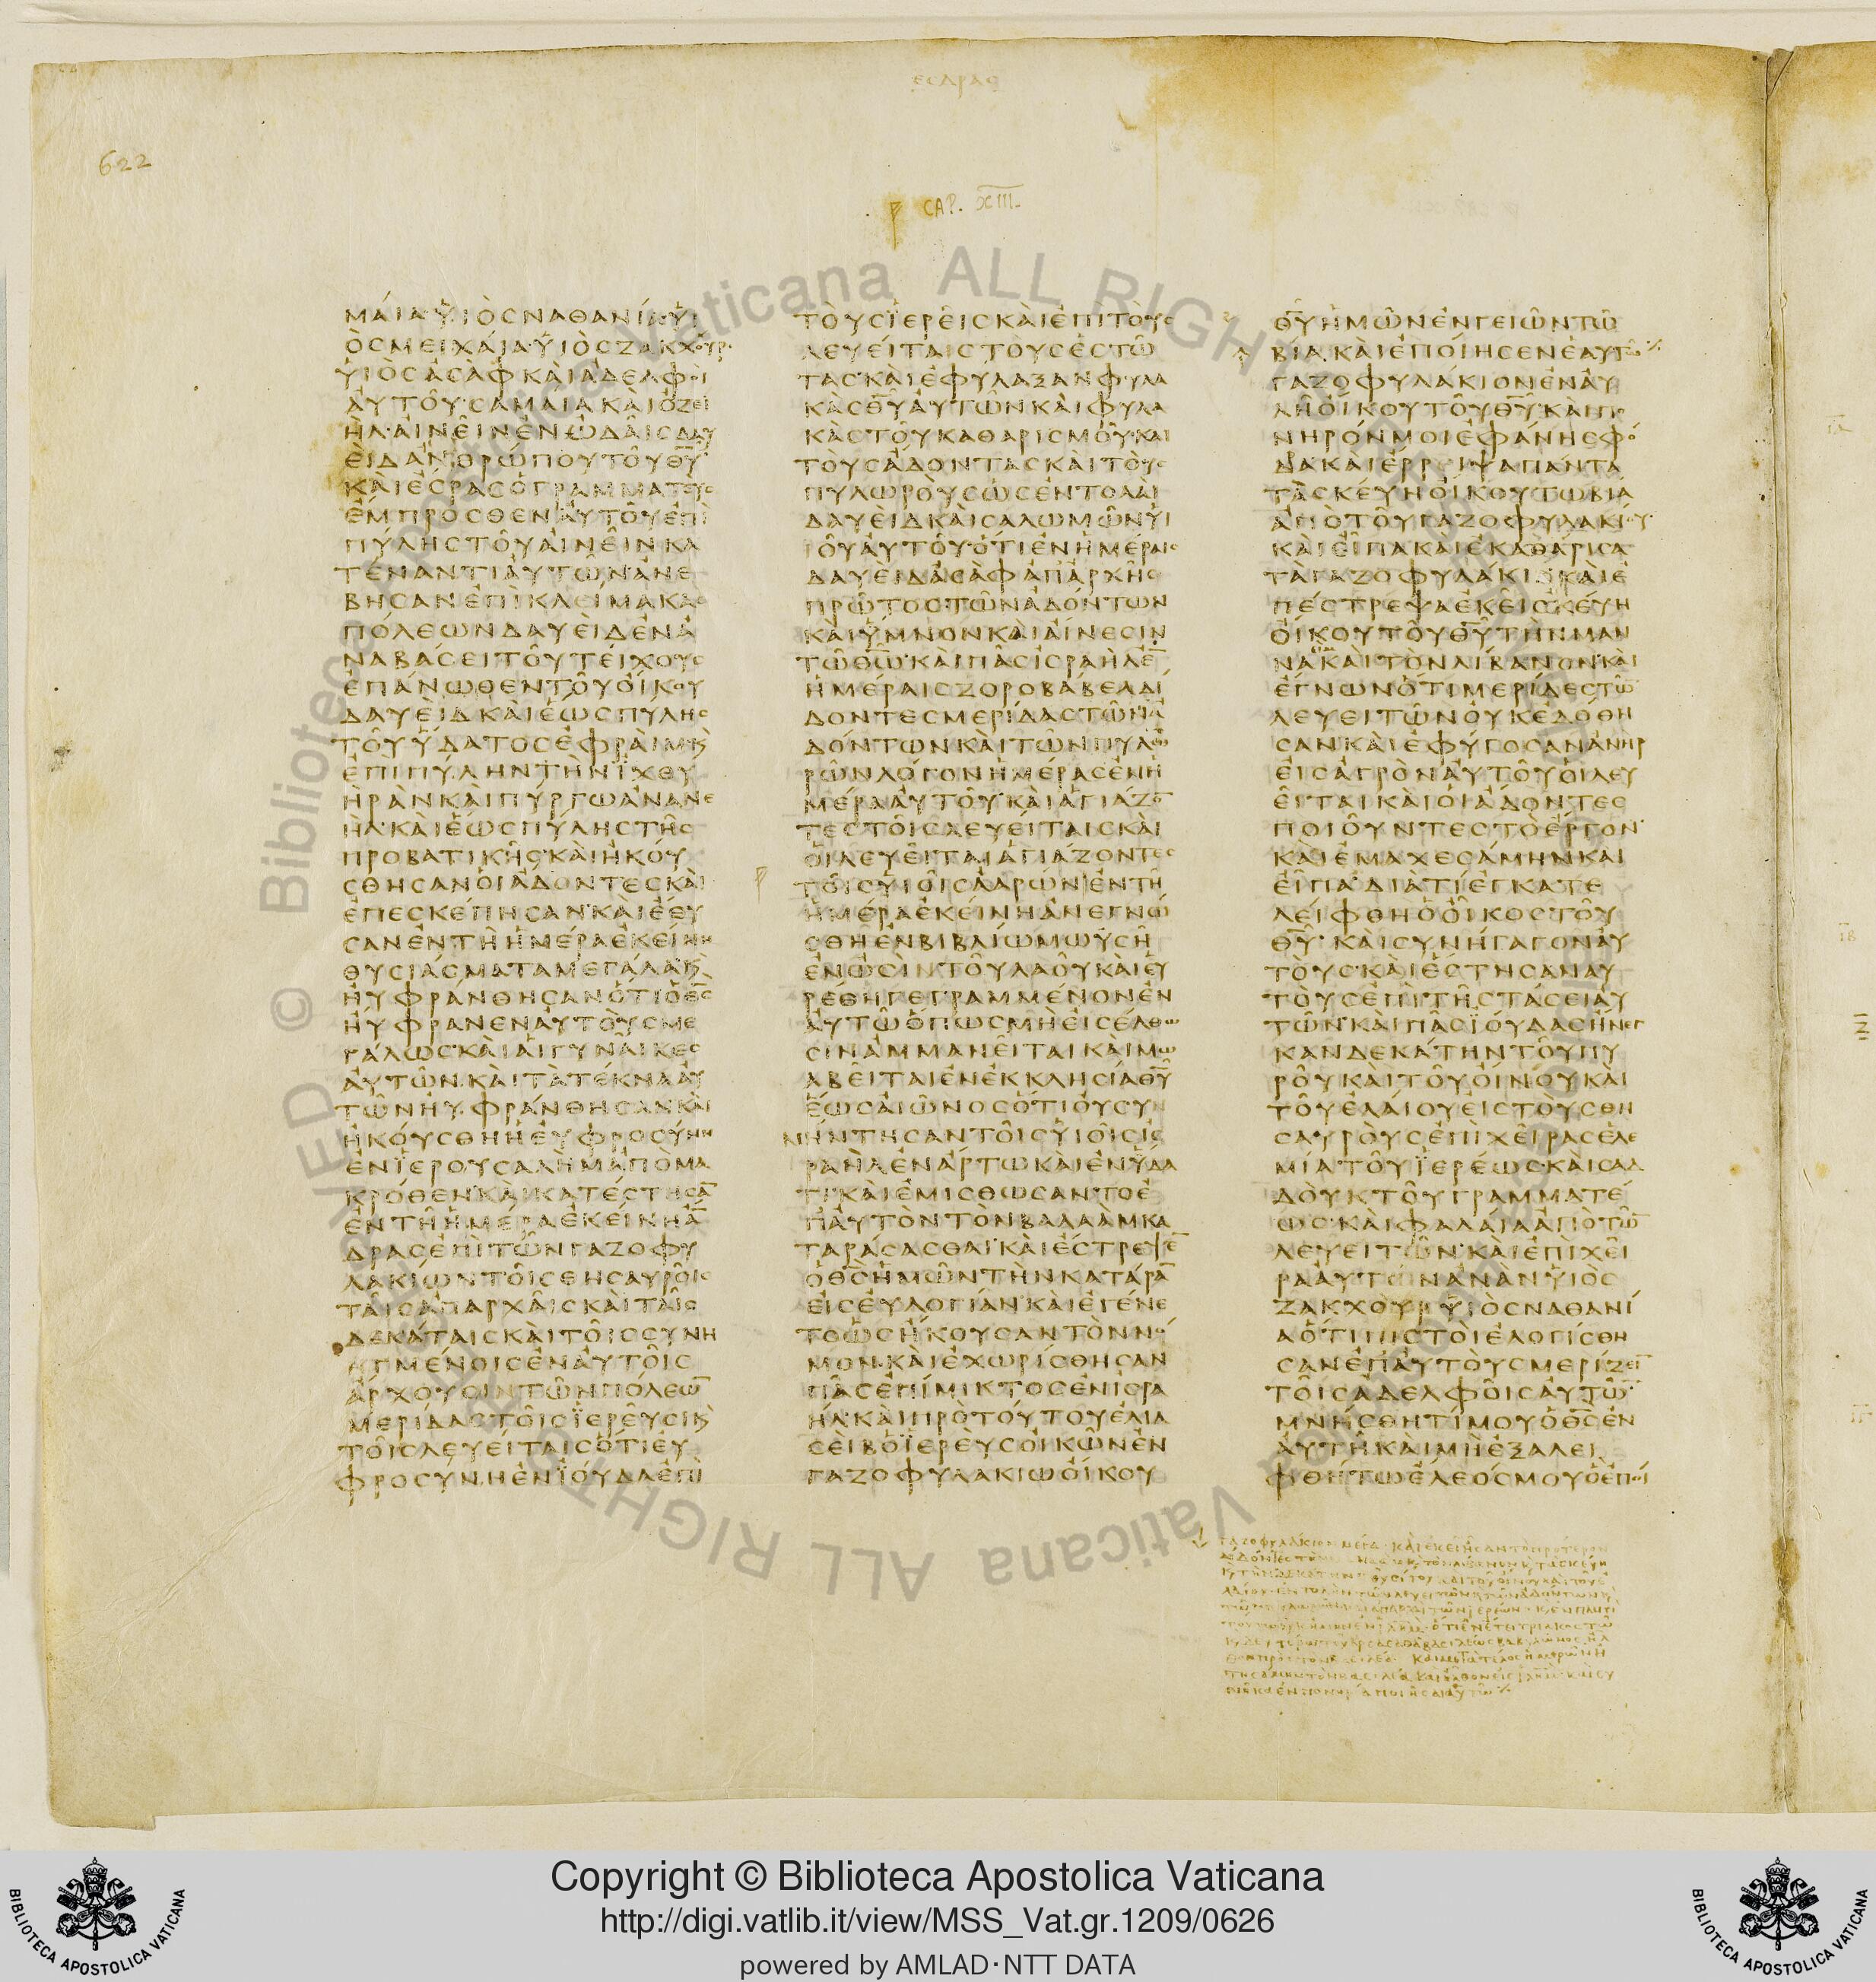 εσδρας
622
CAP. XIII.
ΜΑΙΑΥΙΟCΝΑΘΑΝΙΑΥΙ
ΟCΜΕΙΧΑΙΑΥΙΟCΖΑΚΧΟΥΡ
ΥΙΟCΑCΑΦΚΑΙΑΔΕΛΦΟΙ
ΑΥΤΟΥCΑΜΑΙΑΚΑΙΟΖΕΙ
ΗΛΑΙΝΕΙΝΕΝΩΔΑΙCΔΑΥ
ΕΙΔΑΝΘΡΩΠΟΥΤΟΥΘΥ
ΚΑΙΕCΡΑCΟΓΡΑΜΜΑΤΕΥC
ΕΜΠΡΟCΘΕΝΑΥΤΟΥΕΠΙ
ΠΥΛΗCΤΟΥΑΙΝΕΙΝΚΑ
ΤΕΝΑΝΤΙΑΥΤΩΝΑΝΕ
ΒΗCΑΝΕΠΙΚΛΕΙΜΑΚΑC
ΠΟΛΕΩΝΔΑΥΕΙΔΕΝΑ
ΝΑΒΑCΕΙΤΟΥΤΕΙΧΟΥC
ΕΠΑΝΩΘΕΝΤΟΥΟΙΚΟΥ
ΔΑΥΕΙΔΚΑΙΕΩCΠΥΛΗC
ΤΟΥΥΔΑΤΟCΕΦΡΑΙΜΚ
ΕΠΙΠΥΛΗΝΤΗΝΙΧΘΥ
ΗΡΑΝΚΑΙΠΥΡΓΩΑΝΑΝΕ
ΗΛΚΑΙΕΩCΠΥΛΗCΤΗC
ΠΡΟΒΑΤΙΚΗCΚΑΙΗΚΟΥ
CΘΗCΑΝΟΙΑΔΟΝΤΕCΚΑΙ
ΕΠΕCΚΕΠΗCΑΝΚΑΙΕΘΥ
CΑΝΕΝΤΗΗΜΕΡΑΕΚΕΙΝΗ
ΘΥCΙΑCΜΑΤΑΜΕΓΑΛΑΚ
ΗΥΦΡΑΝΘΗCΑΝΟΤΙΟΘC
ΗΥΦΡΑΝΕΝΑΥΤΟΥCΜΕ
ΓΑΛΩCΚΑΙΑΙΓΥΝΑΙΚΕC
ΑΥΤΩΝΚΑΙΤΑΤΕΚΝΑΑΥ
ΤΩΝΗΥΦΡΑΝΘΗCΑΝΚΑΙ
ΗΚΟΥCΘΗΗΕΥΦΡΟCΥΝΗ
ΕΝΙΕΡΟΥCΑΛΗΜΑΠΟΜΑ
ΚΡΟΘΕΝΚΑΙΚΑΤΕCΤΗCΑ
ΕΝΤΗΗΜΕΡΑΕΚΕΙΝΗΑ
ΔΡΑCΕΠΙΤΩΝΓΑΖΟΦΥ
ΛΑΚΙΩΝΤΟΙCΘΗCΑΥΡΟΙC
ΤΑΙCΑΠΑΡΧΑΙCΚΑΙΤΑΙC
ΔΕΚΑΤΑΙCΚΑΙΤΟΙCCΥΝΗ
ΓΜΕΝΟΙCΕΝΑΥΤΟΙC
ΑΡΧΟΥCΙΝΤΩΝΠΟΛΕΩ
ΜΕΡΙΔΑCΤΟΙCΙΕΡΕΥCΙΚ
ΤΟΙCΛΕΥΕΙΤΑΙCΟΤΙΕΥ
ΦΡΟCΥΝΗΕΝΙΟΥΔΑΕΠΙ
ΤΟΥCΙΕΡΕΙCΚΑΙΕΠΙΤΟΥC
ΛΕΥΕΙΤΑΙCΤΟΥCΕCΤΩ
ΤΑCΚΑΙΕΦΥΛΑΞΑΝΦΥΛΑ
ΚΑCΘΥΑΥΤΩΝΚΑΙΦΥΛΑ
ΚΑCΤΟΥΚΑΘΑΡΙCΜΟΥΚΑΙ
ΤΟΥCΑΔΟΝΤΑCΚΑΙΤΟΥC
ΠΥΛΩΡΟΥCΩCΕΝΤΟΛΑΙ
ΔΑΥΕΙΔΚΑΙCΑΛΩΜΩΝΥΙ
ΟΥΑΥΤΟΥΟΤΙΕΝΗΜΕΡΑΙC
ΔΑΥΕΙΔΑCΑΦΑΠΑΡΧΗC
ΠΡΩΤΟCΤΩΝΑΔΟΝΤΩΝ
ΚΑΙΥΜΝΟΝΚΑΙΑΙΝΕCΙΝ
ΤΩΘΩΚΑΙΠΑCΙCΡΑΗΛΕ
ΗΜΕΡΑΙCΖΟΡΟΒΑΒΕΛΑΙ
ΔΟΝΤΕCΜΕΡΙΔΑCΤΩΝΑ
ΔΟΝΤΩΝΚΑΙΤΩΝΠΥΛΩ
ΡΩΝΛΟΓΟΝΗΜΕΡΑCΕΝΗ
ΜΕΡΑΑΥΤΟΥΚΑΙΑΓΙΑΖΟ
ΤΕCΤΟΙCΛΕΥΕΙΤΑΙCΚΑΙ
ΟΙΛΕΥΕΙΤΑΙΑΓΙΑΖΟΝΤΕC
ΤΟΙCΥΙΟΙCΑΑΡΩΝΕΝΤΗ
ΗΜΕΡΑΕΚΕΙΝΗΑΝΕΓΝΩ
CΘΗΕΝΒΙΒΛΙΩΜΩΥCΗ
ΕΝΩCΙΝΤΟΥΛΑΟΥΚΑΙΕΥ
ΡΕΘΗΓΕΓΡΑΜΜΕΝΟΝΕΝ
ΑΥΤΩΟΠΩCΜΗΕΙCΕΛΘΩ
CΙΝΑΜΜΑΝΕΙΤΑΙΚΑΙΜΩ
ΑΒΕΙΤΑΙΕΝΕΚΚΛΗCΙΑΘΥ
ΕΩCΑΙΩΝΟCΟΤΙΟΥCΥ
ΝΗΝΤΗCΑΝΤΟΙCΥΙΟΙCΙC
ΡΑΗΛΕΝΑΡΤΩΚΑΙΕΝΥΔΑ
ΤΙΚΑΙΕΜΙCΘΩCΑΝΤΟΕ
ΠΑΥΤΟΝΤΟΝΒΑΛΑΑΜΚΑ
ΤΑΡΑCΑCΘΑΙΚΑΙΕCΤΡΕΨΕ
ΟΘCΗΜΩΝΤΗΝΚΑΤΑΡΑ
ΕΙCΕΥΛΟΓΙΑΝΚΑΙΕΓΕΝΕ
ΤΟΩCΗΚΟΥCΑΝΤΟΝΝΟ
ΜΟΝΚΑΙΕΧΩΡΙCΘΗCΑΝ
ΠΑCΕΠΙΜΙΚΤΟCΕΝΙCΡΑ
ΗΛΚΑΙΠΡΟΤΟΥΤΟΥΕΛΙΑ
CΕΙΒΟΙΕΡΕΥCΟΙΚΩΝΕΝ
ΓΑΖΟΦΥΛΑΚΙΩΟΙΚΟΥ
ΘΥΗΜΩΝΕΝΓΕΙΩΝΤΩ
ΒΙΑΚΑΙΕΠΟΙΗCΕΝΕΑΥΤΩ
ΓΑΖΟΦΥΛΑΚΙΟΝΕΝΑΥ
ΛΗΟΙΚΟΥΤΟΥΘΥΚΑΙΠΟ
ΝΗΡΟΝΜΟΙΕΦΑΝΗCΦΟ
ΔΡΑΚΑΙΕΡΡΙΨΑΠΑΝΤΑ
ΤΑCΚΕΥΗΟΙΚΟΥΤΩΒΙΑ
ΑΠΟΤΟΥΓΑΖΟΦΥΛΑΚΙΟΥ
ΚΑΙΕΙΠΑΚΑΙΕΚΑΘΑΡΙCΑ
ΤΑΓΑΖΟΦΥΛΑΚΙΑΚΑΙΕ
ΠΕCΤΡΕΨΑΕΚΕΙCΚΕΥΗ
ΟΙΚΟΥΤΟΥΘΥΤΗΝΜΑΝ
ΝΑΚΑΙΤΟΝΛΙΒΑΝΟΝΚΑΙ
ΕΓΝΩΝΟΤΙΜΕΡΙΔΕCΤΩ
ΛΕΥΕΙΤΩΝΟΥΚΕΔΟΘΗ
CΑΝΚΑΙΕΦΥΓΟCΑΝΑΝΗΡ
ΕΙCΑΓΡΟΝΑΥΤΟΥΟΙΛΕΥ
ΕΙΤΑΙΚΑΙΟΙΑΔΟΝΤΕC
ΠΟΙΟΥΝΤΕCΤΟΕΡΓΟΝ
ΚΑΙΕΜΑΧΕCΑΜΗΝΚΑΙ
ΕΙΠΑΔΙΑΤΙΕΓΚΑΤΕ
ΛΕΙΦΘΗΟΟΙΚΟCΤΟΥ
ΘΥΚΑΙCΥΝΗΓΑΓΟΝΑΥ
ΤΟΥCΚΑΙΕCΤΗCΑΝΑΥ
ΤΟΥCΕΠΙΤΗCΤΑCΕΙΑΥ
ΤΩΝΚΑΙΠΑCΙΟΥΔΑCΗΝΕΓ
ΚΑΝΔΕΚΑΤΗΝΤΟΥΠΥ
ΡΟΥΚΑΙΤΟΥΟΙΝΟΥΚΑΙ
ΤΟΥΕΛΑΙΟΥΕΙCΤΟΥCΘΗ
CΑΥΡΟΥCΕΠΙΧΕΙΡΑCΕΛΕ
ΜΙΑΤΟΥΙΕΡΕΩCΚΑΙCΑΔ
ΔΟΥΚΤΟΥΓΡΑΜΜΑΤΕ
ΩCΚΑΙΦΑΛΑΙΑΑΠΟΤΩ
ΛΕΥΕΙΤΩΝΚΑΙΕΠΙΧΕΙ
ΡΑΑΥΤΩΝΑΝΑΝΥΙΟC
ΖΑΚΧΟΥΡΥΙΟCΝΑΘΑΝΙ
ΑΟΤΙΠΙCΤΟΙΕΛΟΓΙCΘΗ
CΑΝΕΠΑΥΤΟΥCΜΕΡΙΖΕΙ
ΤΟΙCΑΔΕΛΦΟΙCΑΥΤΩ
ΜΝΗCΘΗΤΙΜΟΥΟΘCΕΝ
ΑΥΤΗΚΑΙΜΗΕΞΑΛΕΙ
ΦΘΗΤΩΕΛΕΟCΜΟΥΟΕΠΟΙ
Copyright © Biblioteca Apostolica Vaticana
http://digi.vatlib.it/view/MSS_Vat.gr.1209/0626
powered by AMLAD·NTT DATA
BIBLIOTECA APOSTOLICA VATICANA
BIBLIOTECA APOSTOLICA VATICANA